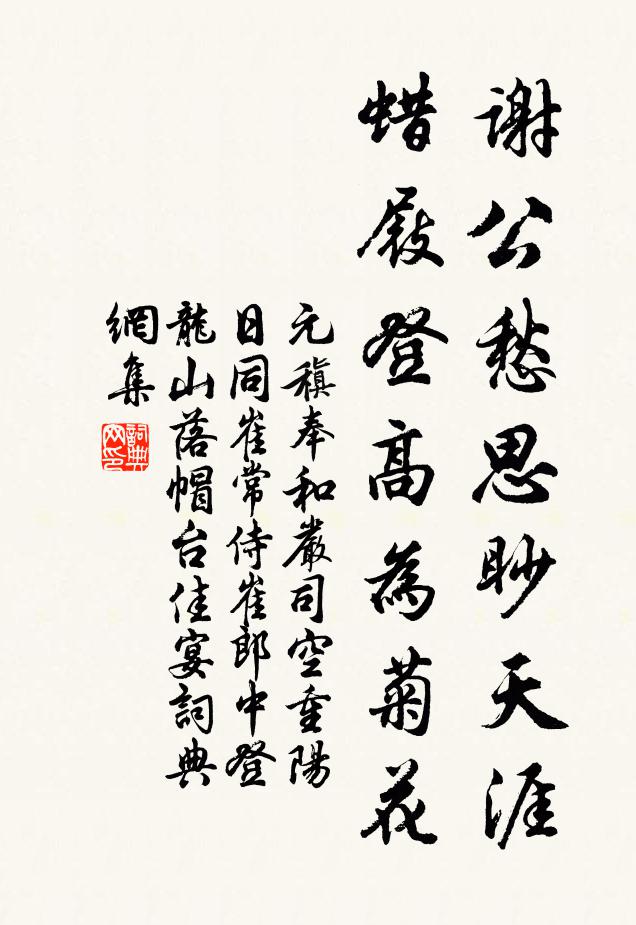 謝公愁思眇天涯
蜡屐登高為菊花
元稹奉和嚴司空重陽
日同崔常侍崔郎中登
龍山落帽台佳宴詞典
網集
詞典网印